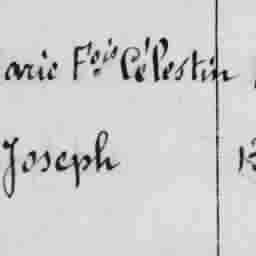 arie Fçois Célestin
Joseph 13